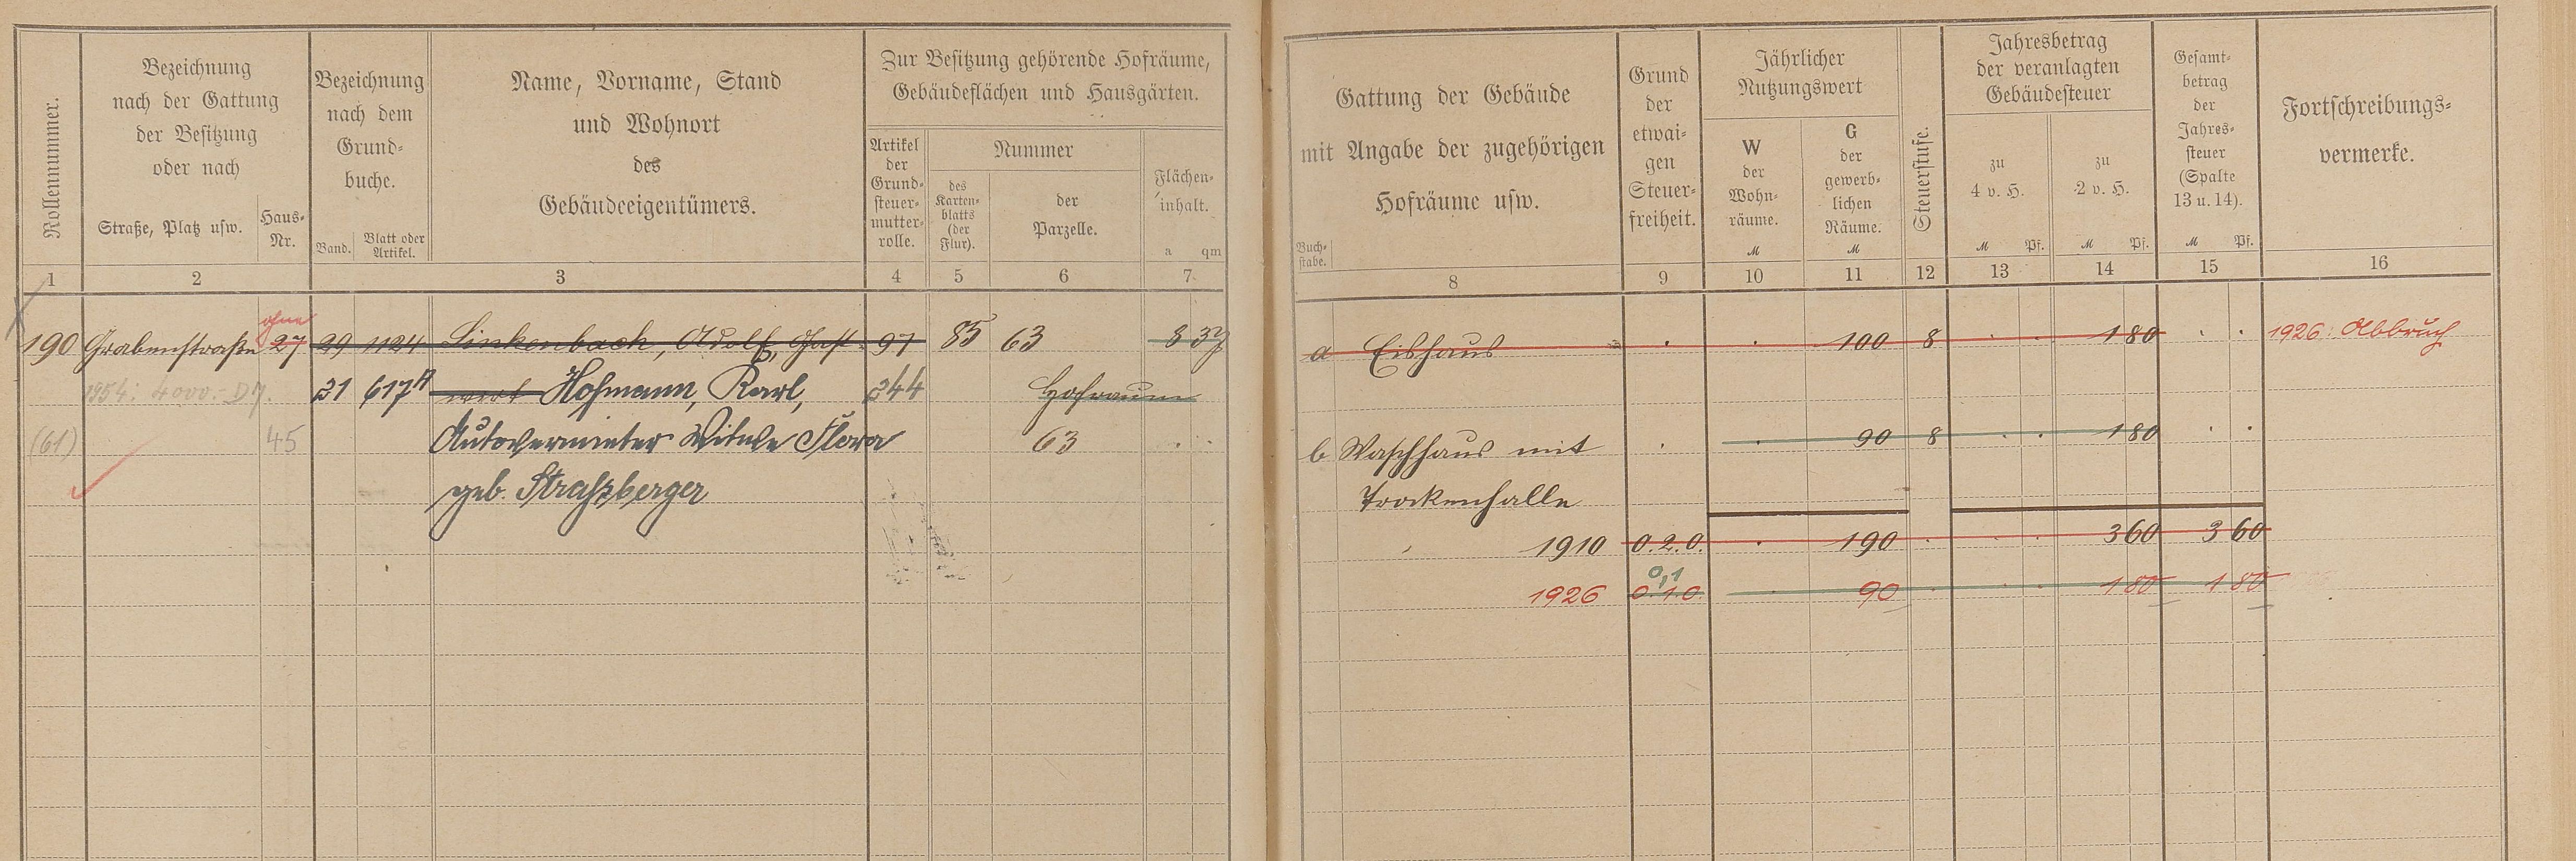 Rollennummer.
Bezeichnung
nach der Gattung
der Besitzung
oder nach
Straße, Platz usw.
Haus-
Nr.
Bezeichnung
nach dem
Grund-
buche.
Band.
Blatt oder
Artikel.
Name, Vorname, Stand
und Wohnort
des
Gebäudeeigentümers.
Zur Besitzung gehörende Hofräume,
Gebäudeflächen und Hausgärten.
Artikel
der
Grund-
steuer-
mutter-
rolle.
Nummer
des
Karten-
blatts
(der
Flur).
der
Parzelle.
Flächen-
inhalt.
a qm
1 2 3 4 5 6 7
ohne
190 Grabenstraße 27 29 1124 Linkenbach, Adolf, Gast- 97 85 63 8 37
1954: 4000.- DM. 31 617A wirt Hofmann, Karl, 344 Hofraum
(61) 45 Autovermieter Witwe Flora 63 . .
geb. Straßberger
Gattung der Gebäude
mit Angabe der zugehörigen
Hofräume usw.
Buch-
stabe.
Grund
der
etwai-
gen
Steuer-
freiheit.
Jährlicher
Nutzungswert
W
der
Wohn-
räume.
M
G
der
gewerb-
lichen
Räume.
M
Steuerstufe.
Jahresbetrag
der veranlagten
Gebäudesteuer
zu
4 v. H.
M Pf.
zu
2 v. H.
M Pf.
Gesamt-
betrag
der
Jahres-
steuer
(Spalte
13 u. 14).
M Pf.
Fortschreibungs-
vermerke.
8 9 10 11 12 13 14 15 16
a Eishaus . . 100 8 . . 1 80 . . 1926: Abbruch
b Waschhaus mit . . 90 8 . . 1 80 . .
Trockenhalle
1910 0.2.0. . 190 . . . 3 60 3 60
0,1
1926 0.1.0. . 90 . . . 1 80 1 80